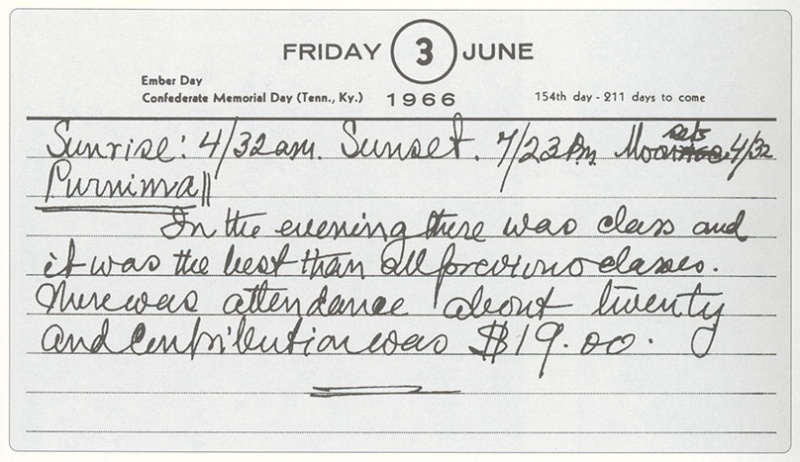 FRIDAY 3 JUNE
Ember Day
Confederate Memorial Day (Tenn., Ky.) 1966 154th day - 211 days to come
Sunrise: 4/32 am. Sunset. 7/23 Pm. Moon sets 4/32
Purnima||
In the evening there was class and
it was the best than all previous classes.
There was attendance about twenty
and contribution was $19.00.